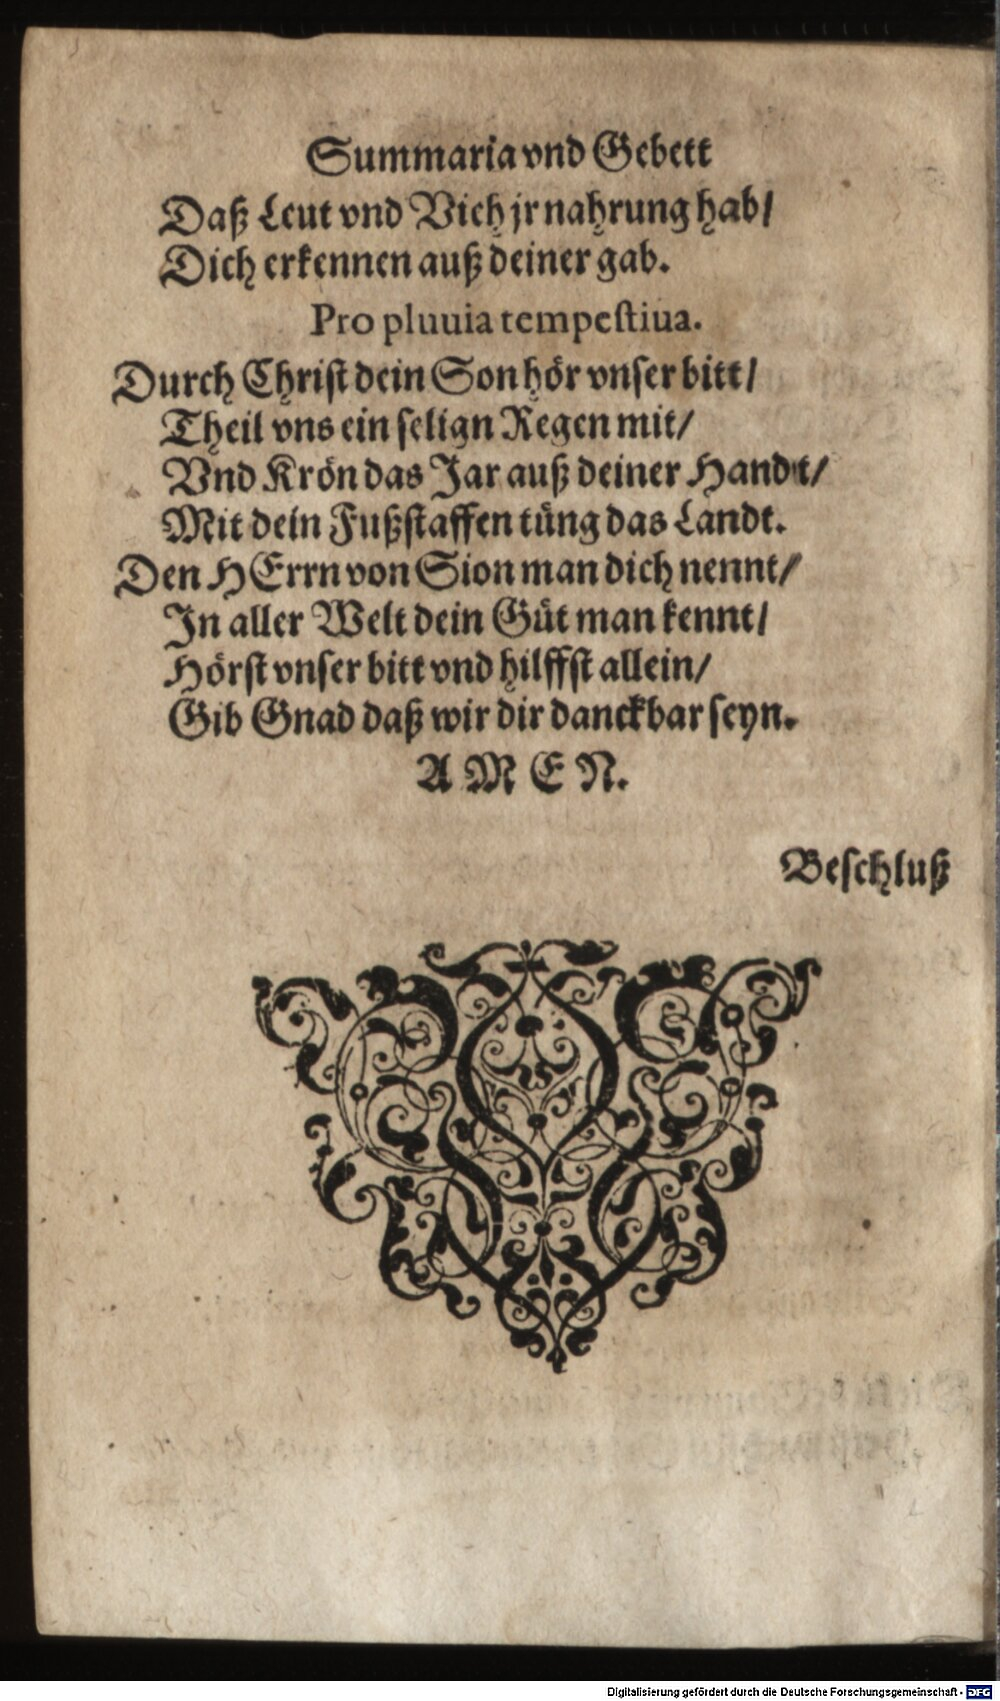 Summaria vnd Gebett
Daß Leut vnd Vieh jr nahrung hab/
Dich erkennen auß deiner gab.
Pro pluuia tempestiua.
Durch Christ dein Son hör vnser bitt/
Theil vns ein selign Regen mit/
Vnd Krön das Jar auß deiner Handt/
Mit dein Fußstaffen tüng das Landt.
Den HErrn von Sion man dich nennt/
In aller Welt dein Güt man kennt/
Hörst vnser bitt vnd hilffst allein/
Gib Gnad daß wir dir danckbar seyn.
A M E N.
Beschluß
Digitalisierung gefördert durch die Deutsche Forschungsgemeinschaft - DFG